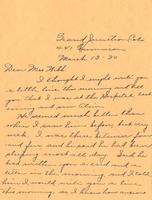 Grand Junction Colo
441 Gunnison
March 13-30
Dear Mrs Webb
I thought I might write you
a little line this morning and tell
you that I was at the Hospital last
evening and saw
He seemed much better than
when I saw him before, but very
weak. I was there between four
and five and he said he had been
sleeping most all day. Said he
had
letter in the morning, and I told
him I would write you a line
this morning, as I knew how anxious